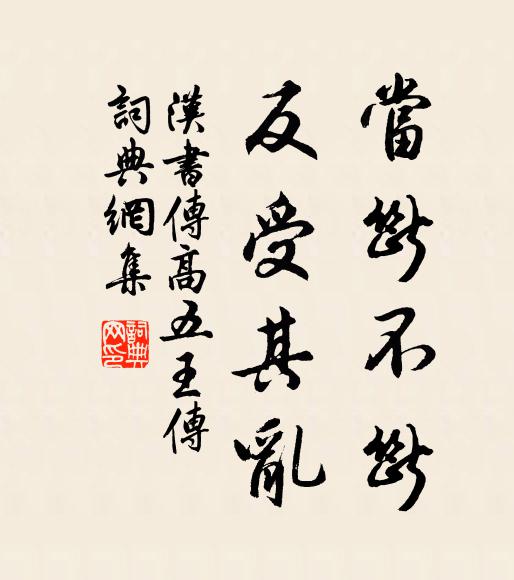 當斷不斷
反受其亂
漢書傳高五王傳
詞典網集
詞典网印